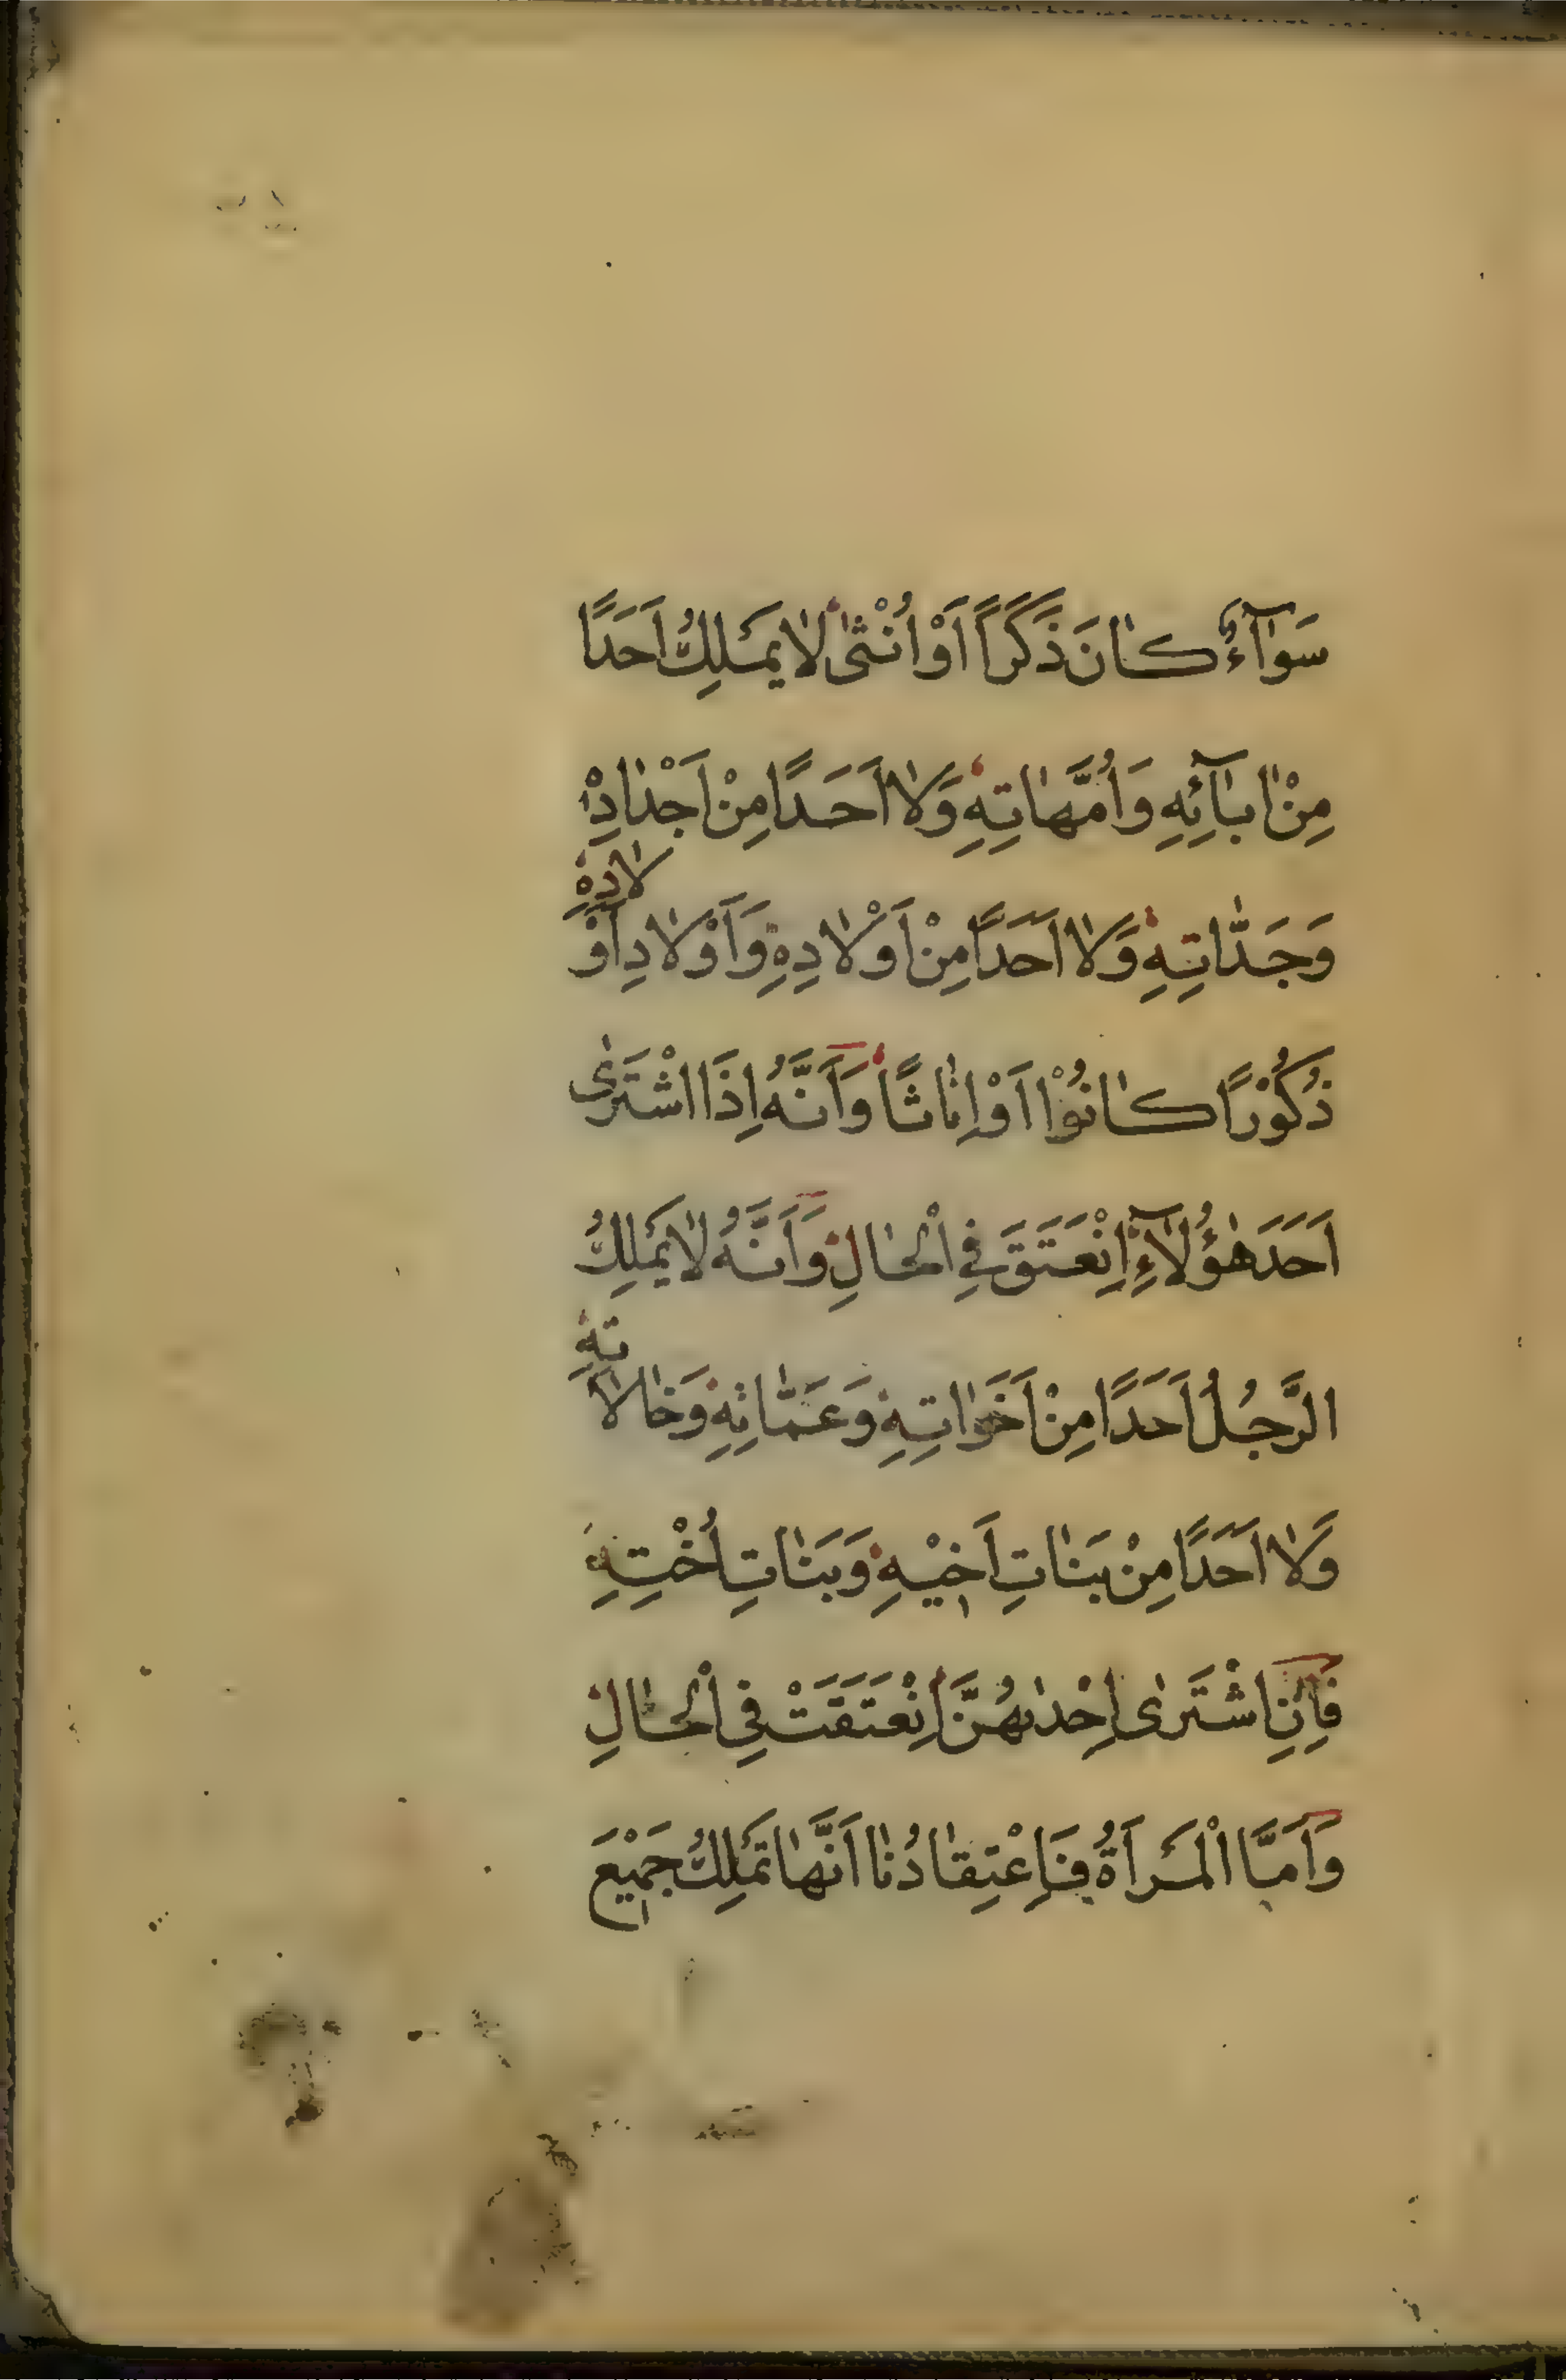 سَوٰٓاءٌ كٰانَ ذَكَرًا اَوْ اُنْثٰى لٰا يَمْلِكُ اَحَدًا
مِنْ اٰبٰٓائِهِ وَاُمَّهٰاتِهِ وَلٰا اَحَدًا مِنْ اَجْدٰادِهِ
وَجَدّٰاتِهِ وَلٰا اَحَدًا مِنْ اَوْلٰادِهِ وَاَوْلٰادِ اَوْلٰادِهِ
ذُكُوْرًا كٰانُوْا اَوْ اِنٰاثًا وَاَنَّهُ اِذَا اشْتَرٰى
اَحَدَ هٰؤُلٰٓاءِ اِنْعَتَقَ فِي الْحٰالِ وَاَنَّهُ لٰا يَمْلِكُ
الرَّجُلُ اَحَدًا مِنْ اَخَوٰاتِهِ وَعَمّٰاتِهِ وَخٰالٰاتِهِ
وَلٰا اَحَدًا مِنْ بَنٰاتِ اَخِيْهِ وَبَنٰاتِ اُخْتِهِ
فَاِنِ اشْتَرٰى اِحْدٰىهُنَّ اِنْعَتَقَتْ فِي الْحٰالِ
وَاَمَّا الْمَرْاَةُ فَاِعْتِقٰادُنٰا اَنَّهٰا تَمْلِكُ جَمِيْعَ